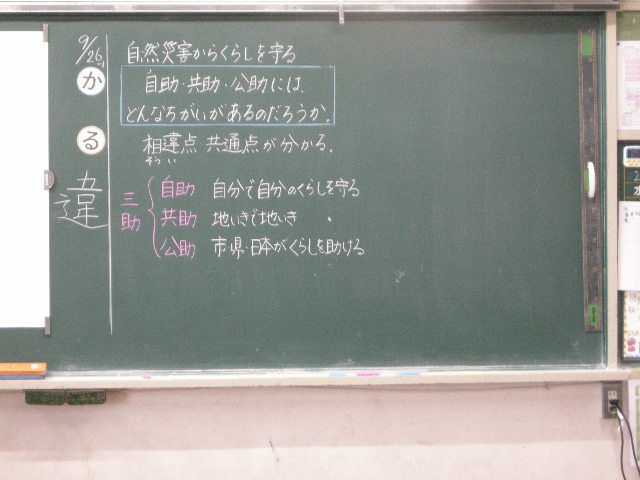 9/26
か
る
違
自然災害からくらしを守る
自助・共助・公助には、
どんなちがいがあるのだろうか。
相違点 共通点が分かる。
そう い
三助
自助 自分で自分のくらしを守る
共助 地いきで地いき 〃
公助 市・県・日本がくらしを助ける